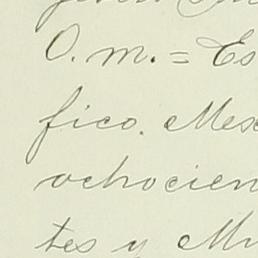 O. m. = Es
fico. Mex
ochocien
tes y Mu